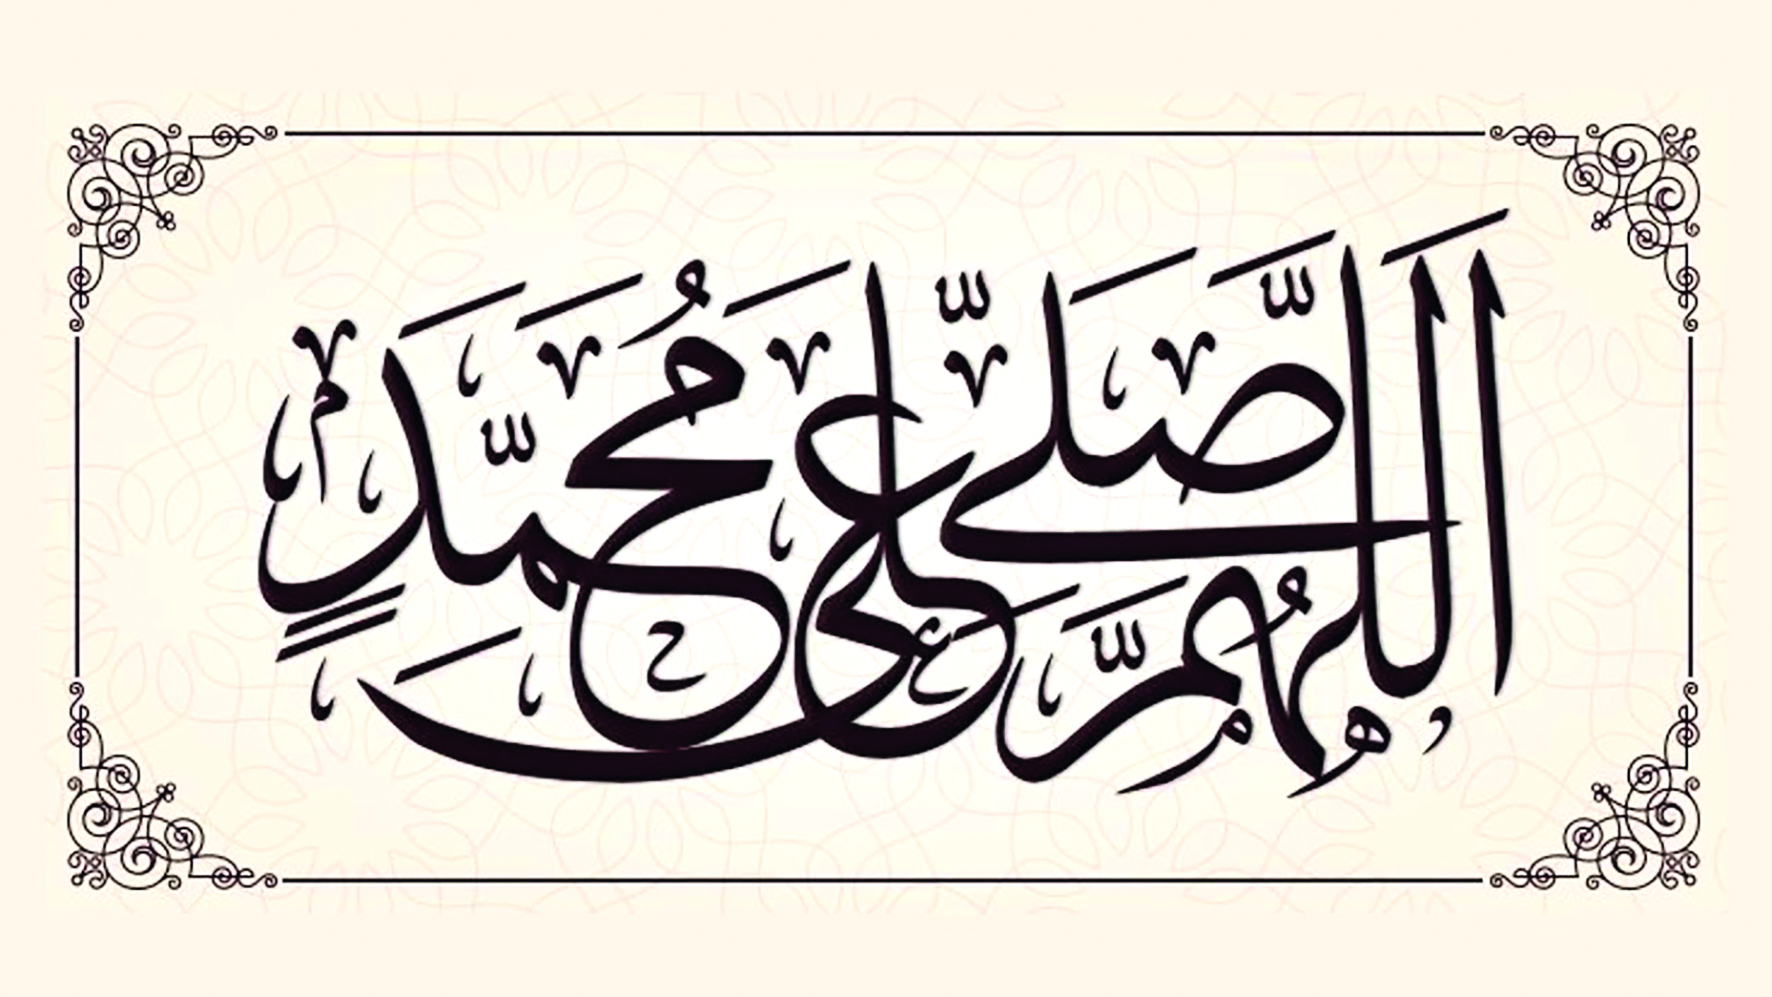 اللَّهُمَّ صَلِّ عَلَى مُحَمَّدٍ